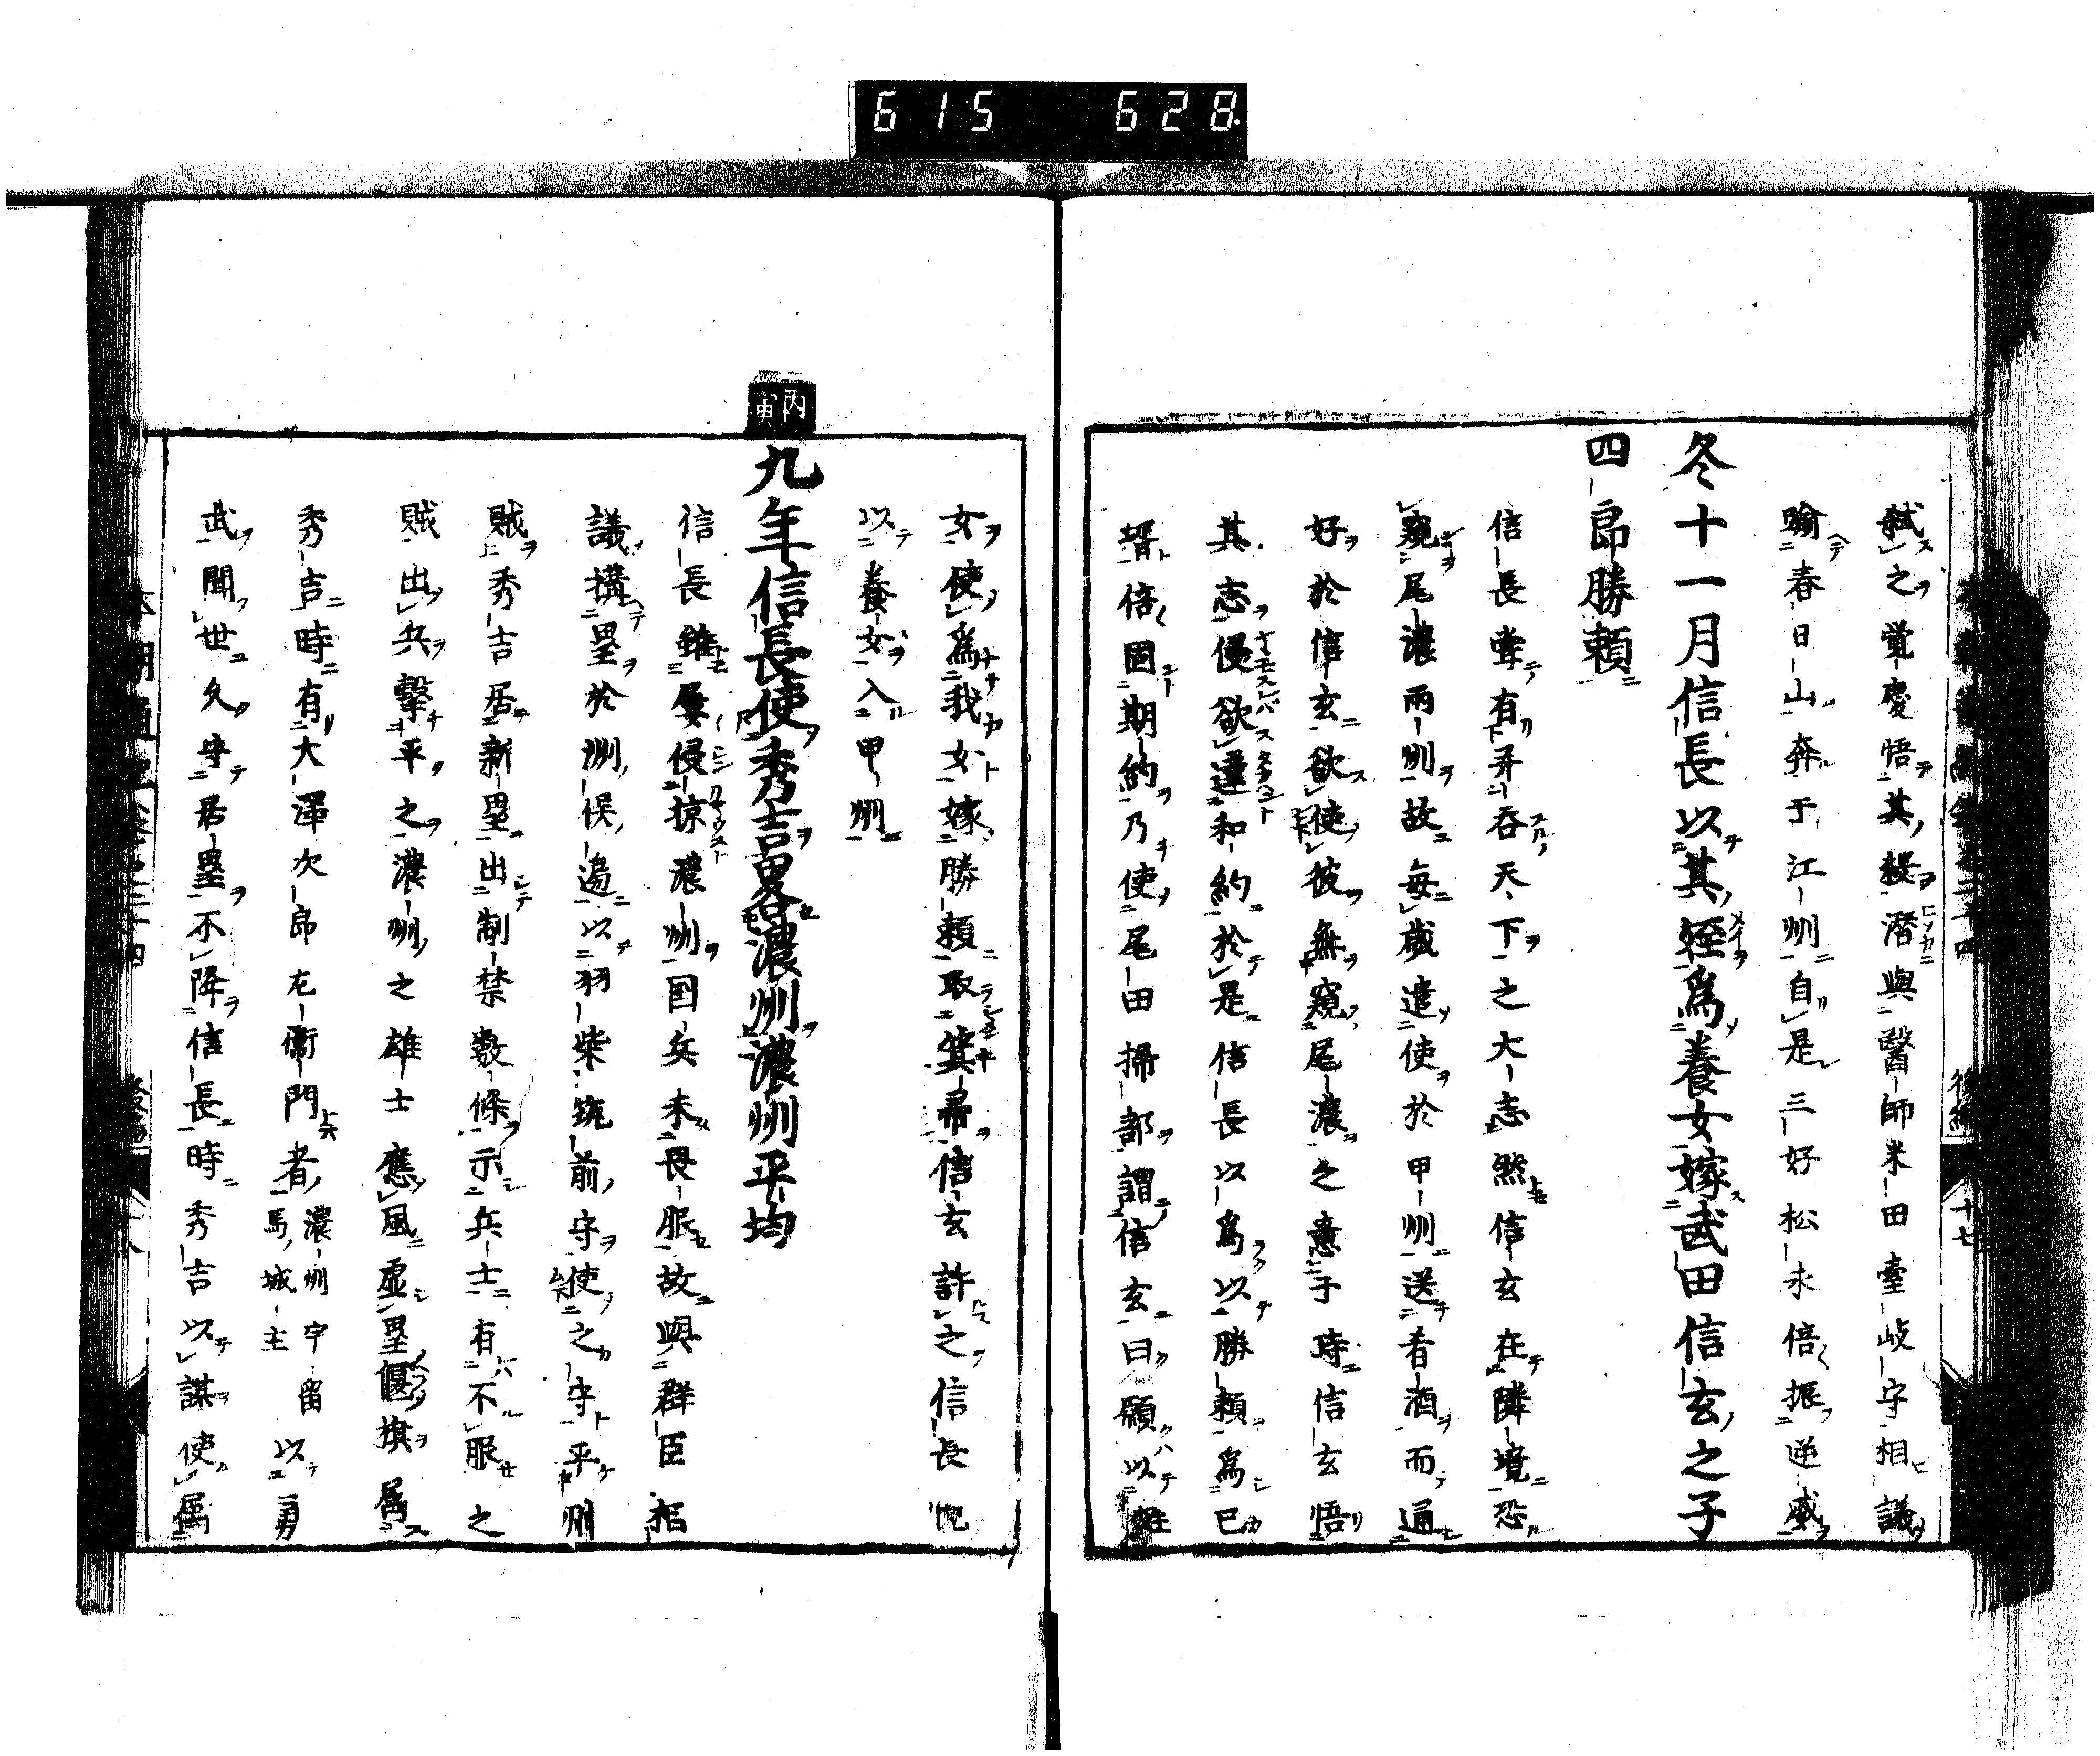 615 628
弑之覚慶悟其殺潜與醫師米田臺岐守相議
踰春日山奔于江州自是三好松永倍振逆威
冬十一月信長以其姪爲養女嫁武田信玄之子
四郎勝頼
信長甞有并呑天下之大志然信玄在隣境恐
窺尾濃兩州故毎歳遣使於甲州送肴酒而通
好於信玄欲使彼無窺尾濃之意于時信玄悟
其志侵欲違和約於是信長以爲以勝頼爲已
壻倍固期約乃使尾田掃部謂信玄曰願以姪
女使爲我女嫁勝頼取箕帚信玄許之信長悦
以養女入甲州
丙寅
九年信長使秀吉畧濃州濃州平均
信長雖屢侵掠濃州国兵未畏服故與群臣相
議搆塁於洲俣邉以羽柴筑前守使之守平州
賊秀吉居新塁出制禁數條示兵士有不服之
賊出兵擊平之濃州之雄士應風虚塁偃旗属
秀吉時有大澤次郎左衞門者濃州宇留馬城主以勇
武聞世久守居塁不降信長時秀吉以謀使属
十七
後編